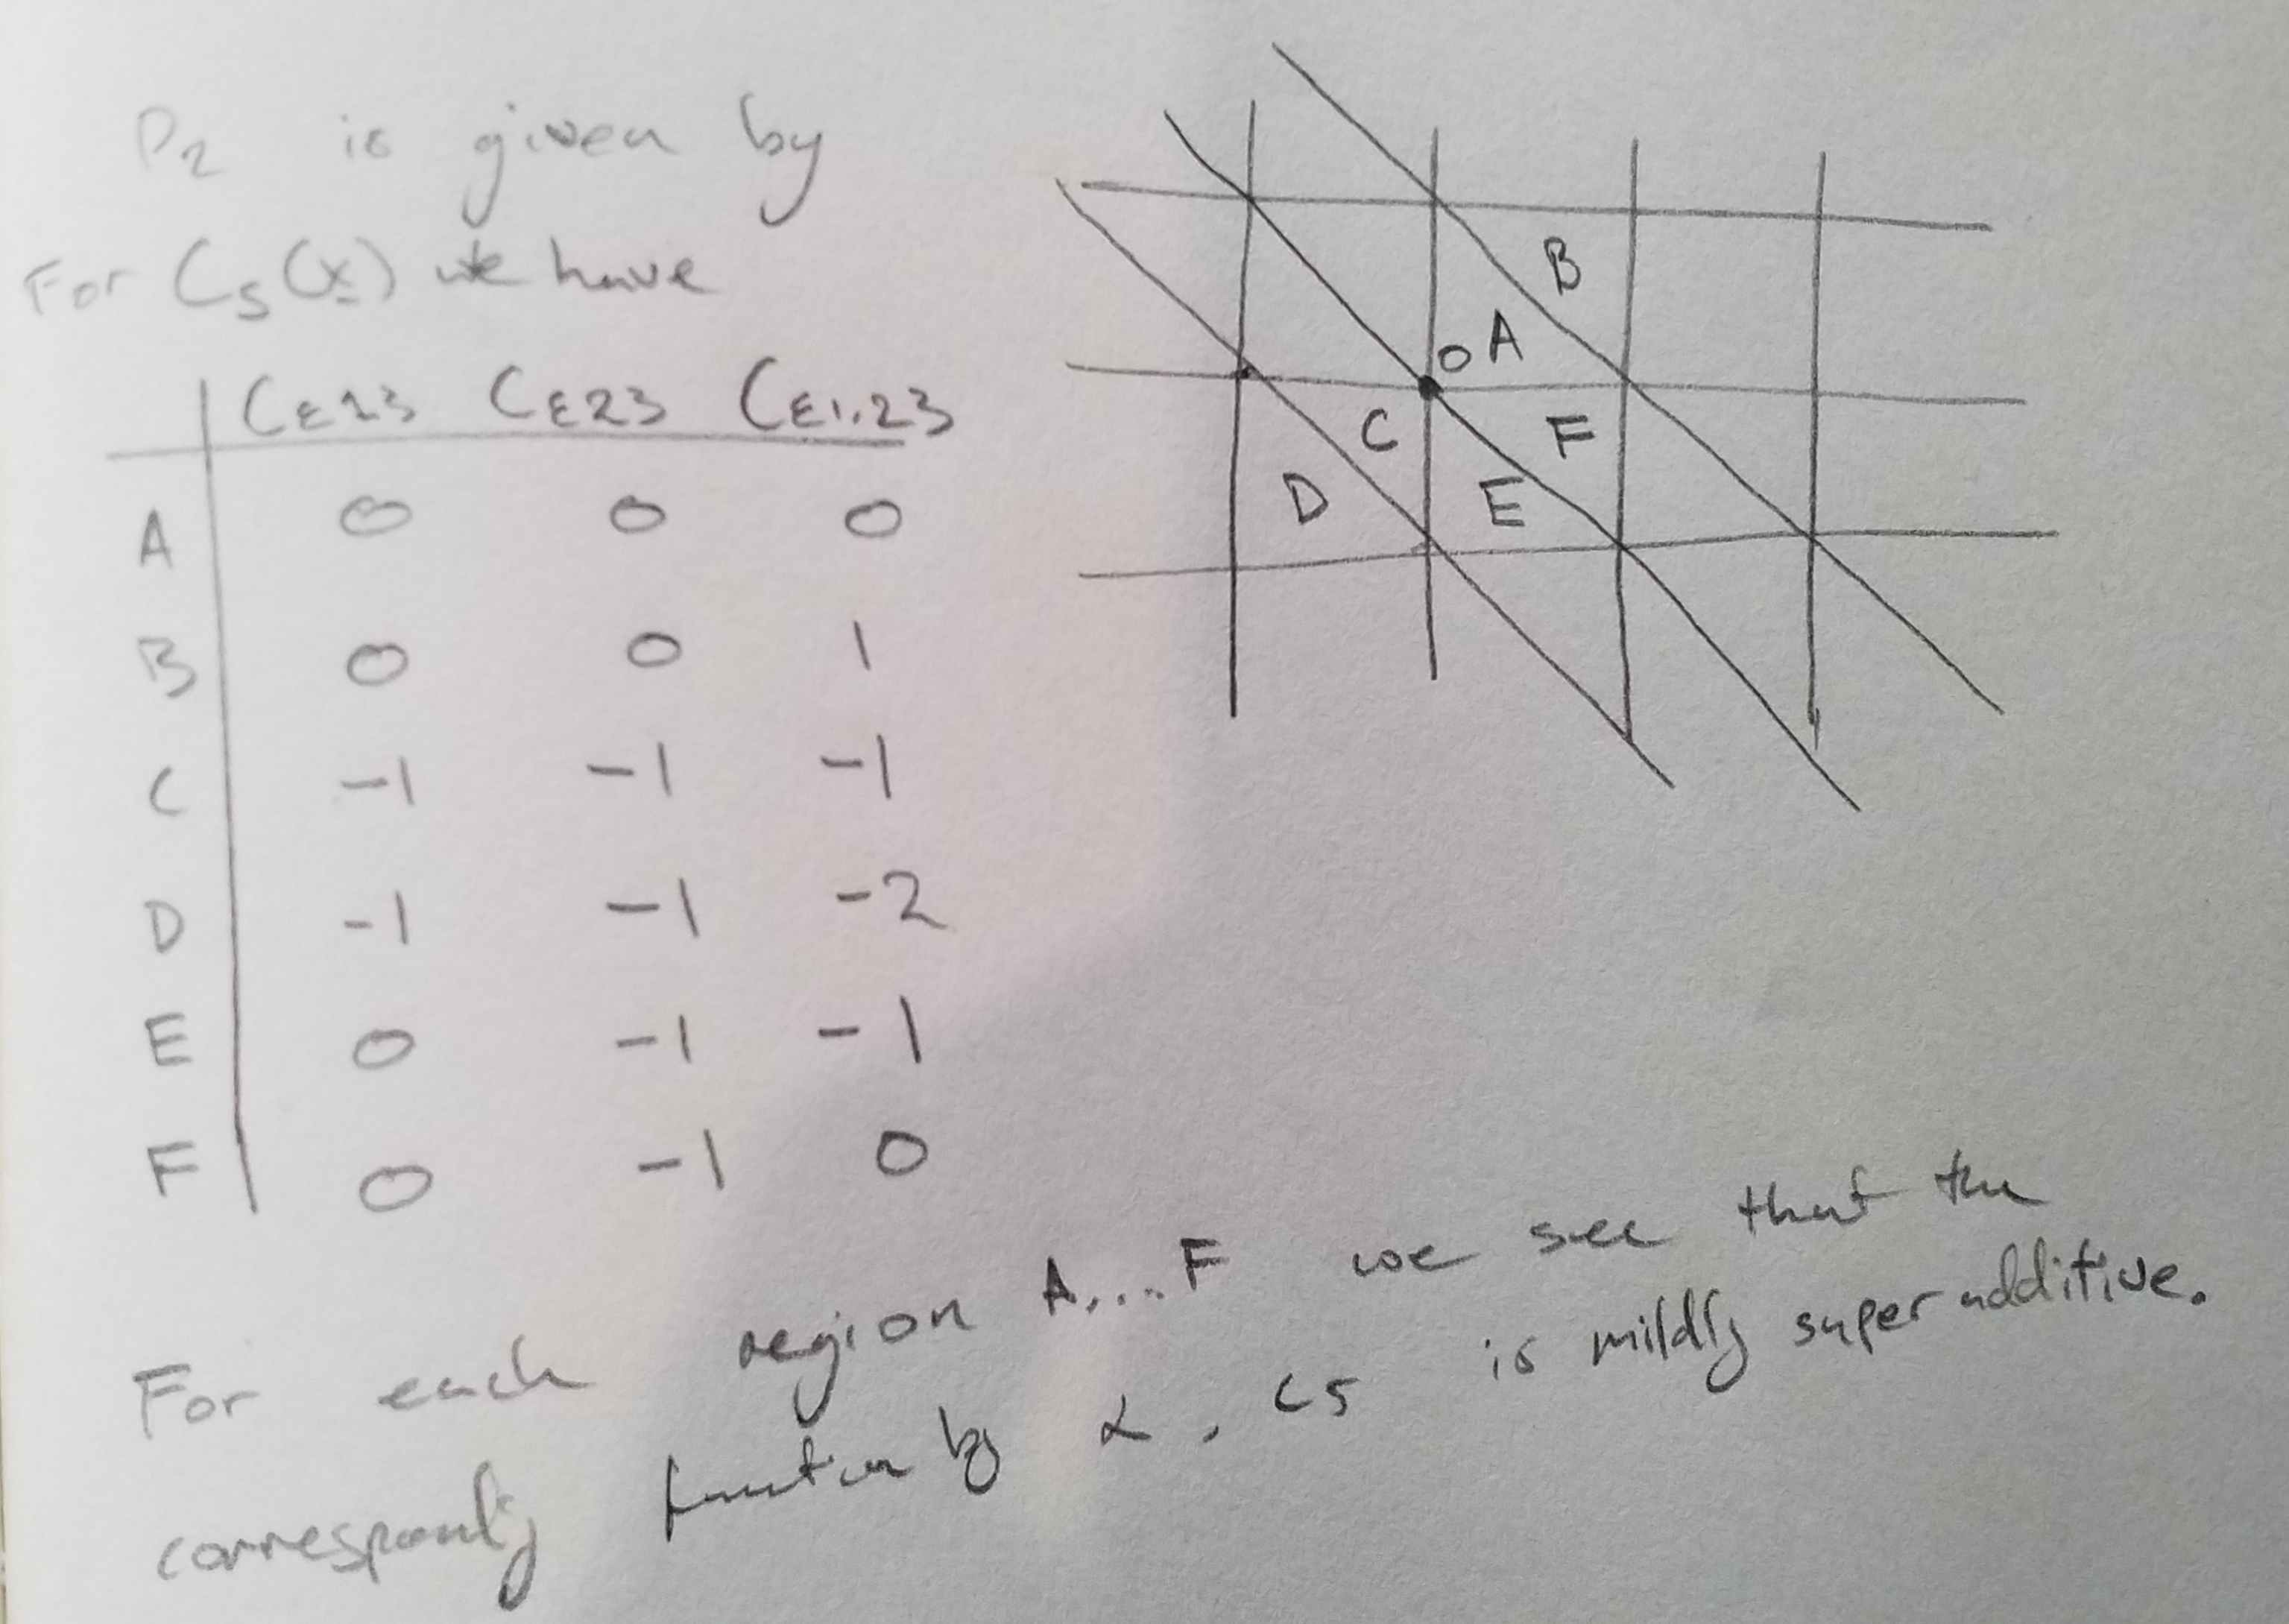 P2 is given by
For Cs(x) we have
Cε13 Cε23 Cε1..23
A 0 0 0
B 0 0 1
C -1 -1 -1
D -1 -1 -2
E 0 -1 -1
F 0 -1 0
B
0 A
C F
D E
For each region A....F we see that the
function by α. cs is mildly superadditive.